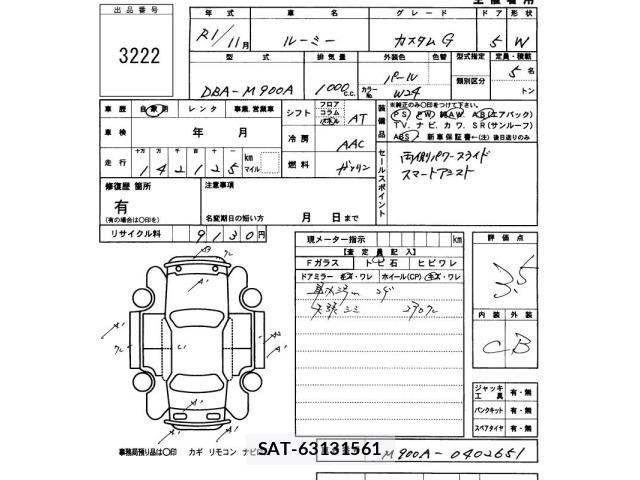 出品番号
3222
年式 車名 グレード ドア 形状
R1/11月 ルーミー カスタムG 5 W
型式 排気量 外装色 色替 型式指定 定員・積載
DBA-M900A 1000c.c. パール カラーNo W24 類別区分 5名
トン
車歴 自家用 レンタ 事業、営業車
車検 年 月
走行 十万 万 千 百 十 km マイル
142125
シフト フロア コラム パネル AT
冷房 AAC
燃料 ガソリン
装備品
※純正のみ〇印をつけて下さい。
PS PW 純AW AB(エアバック)
TV、ナビ、カワ、SR(サンルーフ)
ABS 新車保証書←(注) 後日送りのみ
セールスポイント
両側パワースライド
スマートアシスト
修復歴 箇所
有
(有の場合は〇印を)
注意事項
名変期日の短い方 月 日まで
リサイクル料 9130円
現メーター指示 km
【査定員記入】
Fガラス トビ石 ヒビワレ
ドアミラー キズ・ワレ ホイール(CP) キズ・ワレ
評価点
3.5
内装 外装
C B
ジャッキ工具 有・無
パンクキット 有・無
スペアタイヤ 有・無
事務局預り品は〇印 カギ リモコン ナビ
SAT-63131561
M900A-0402651